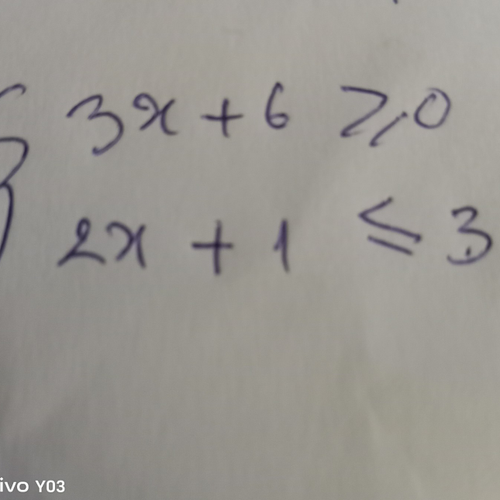 { 3x + 6 ≥ 0
2x + 1 ≤ 3
ivo Y03